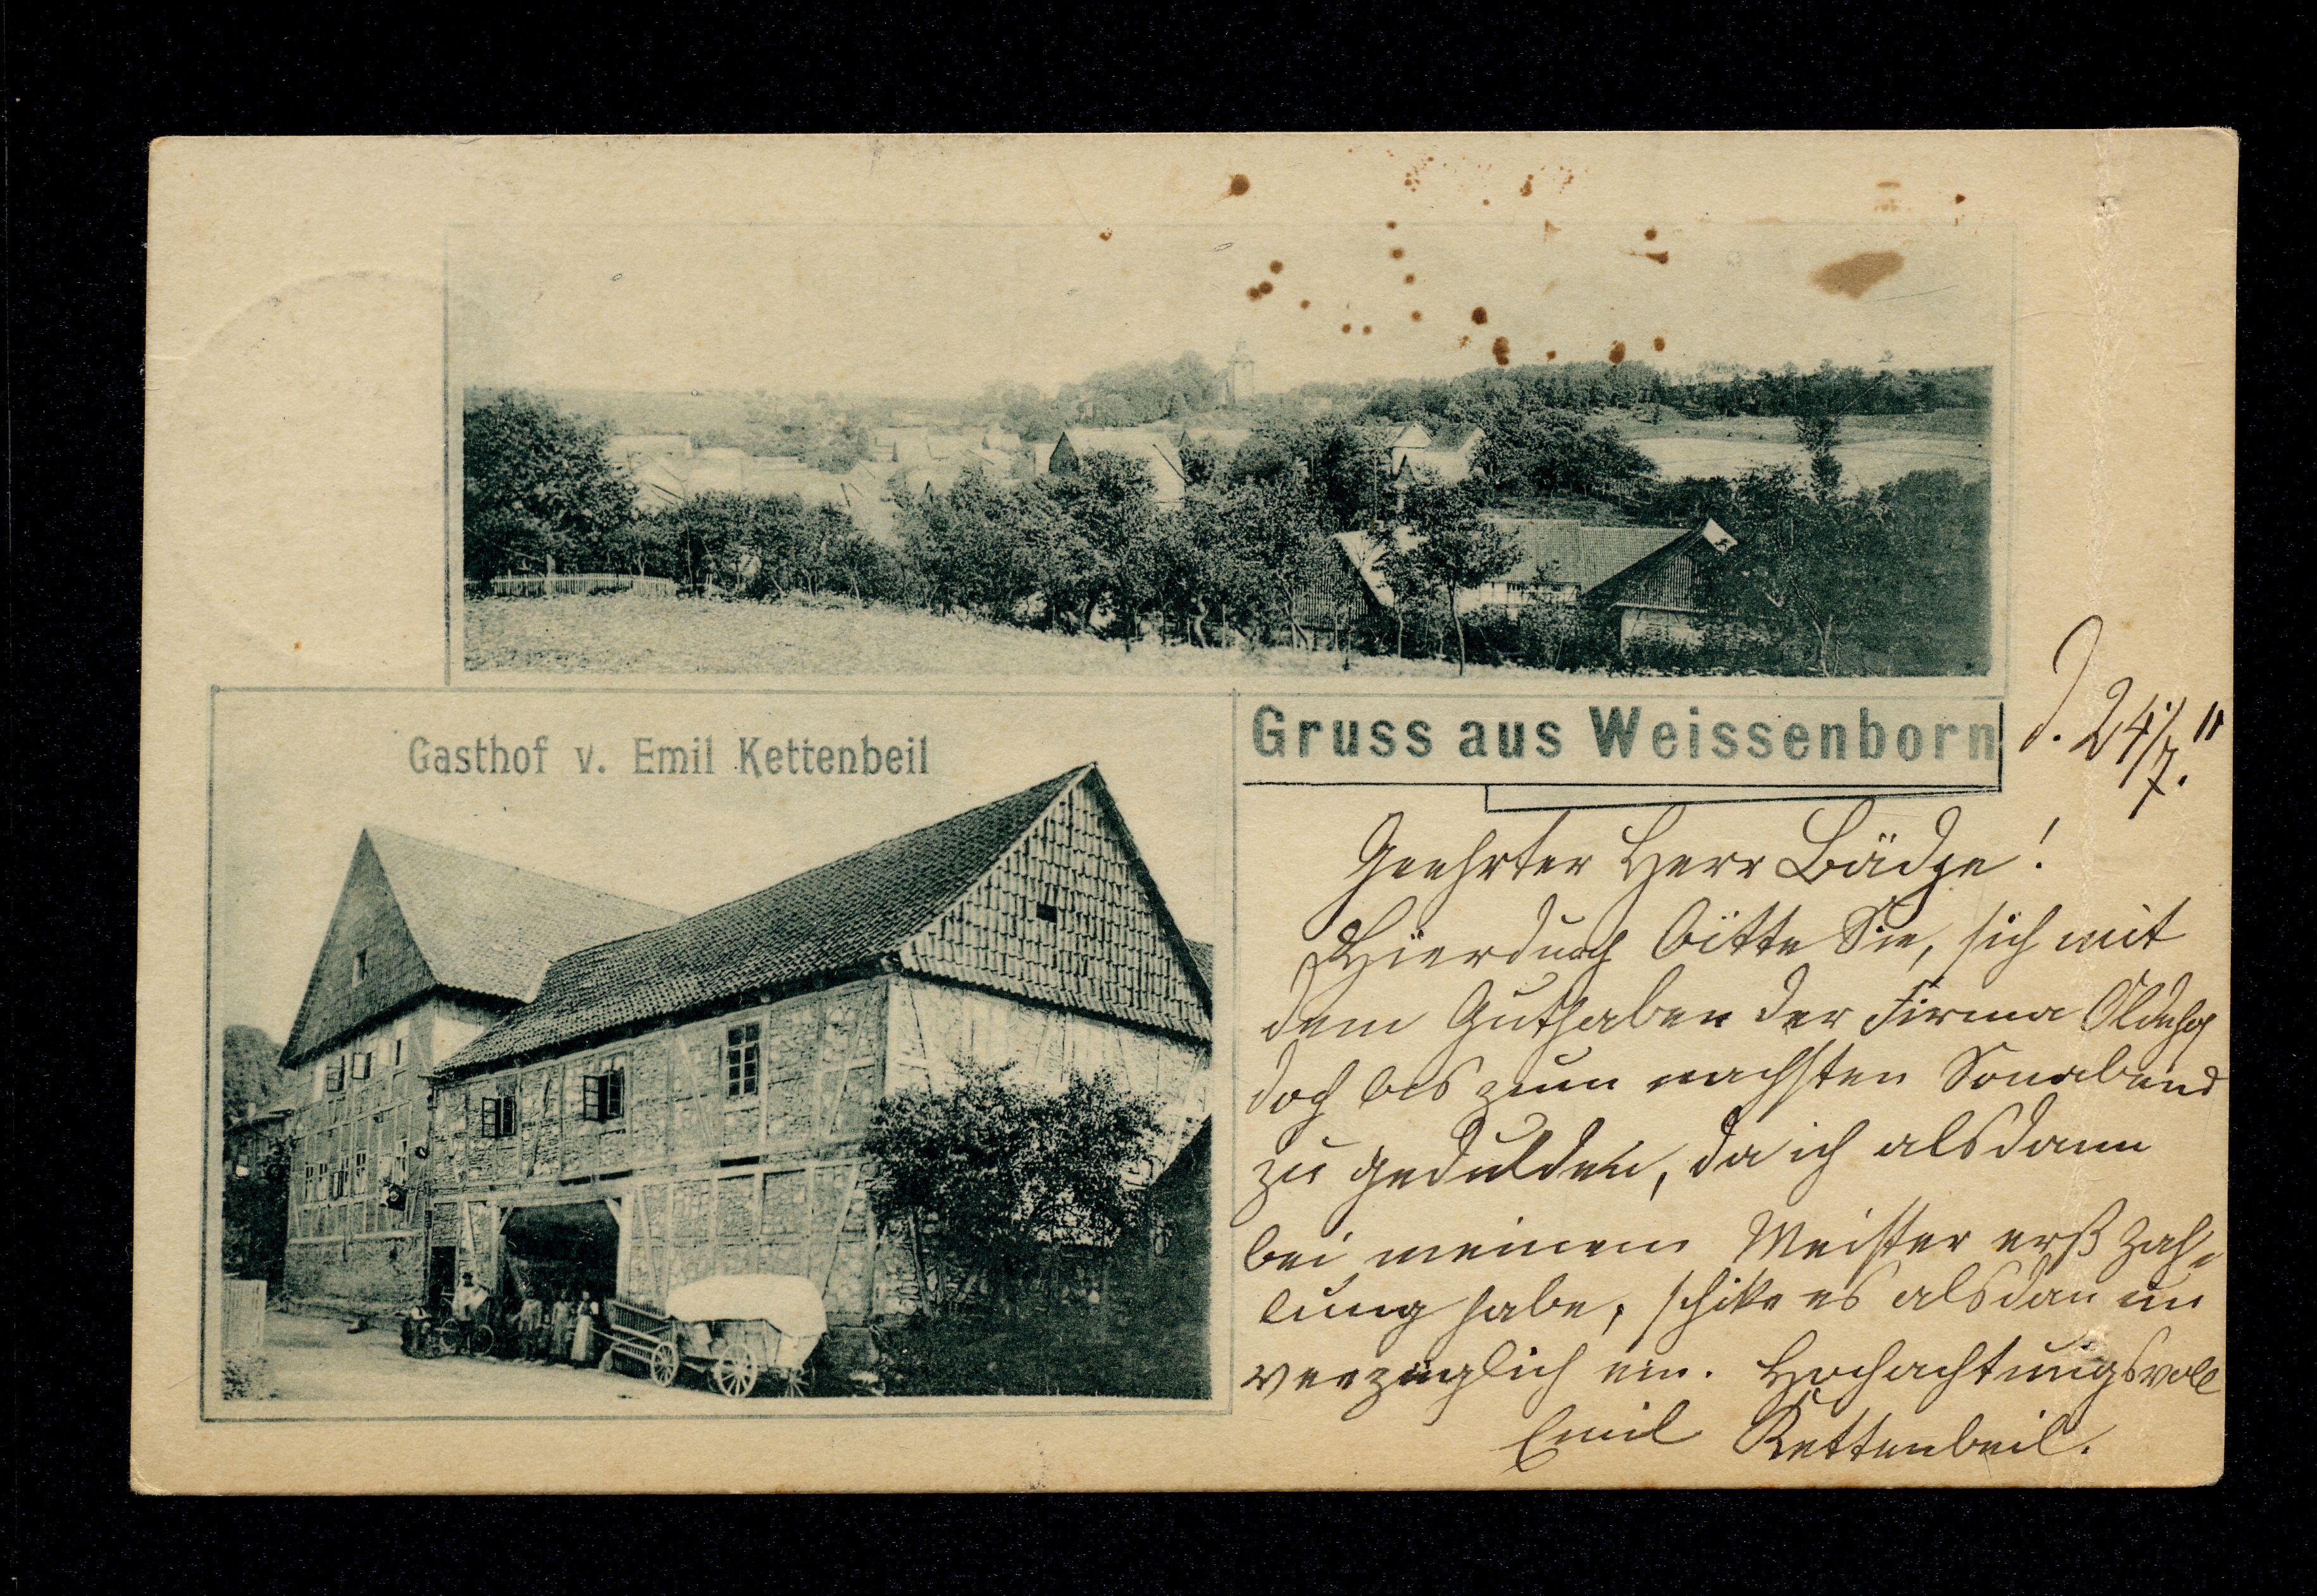 Gruss aus Weissenborn
d. 24/7. 11
Gasthof v. Emil Kettenbeil
Geehrter Herr Bädge!
Hierdurch bitte Sie, sich mit
dem Guthaben der Firma
doch bis zum nachsten Sonabend
zu gedulden, da ich alsdann
bei meinem Meister erst Zah-
lung habe, schike es alsdan un
verzüglich ein. Hochachtungsvoll
Emil Kettenbeil.